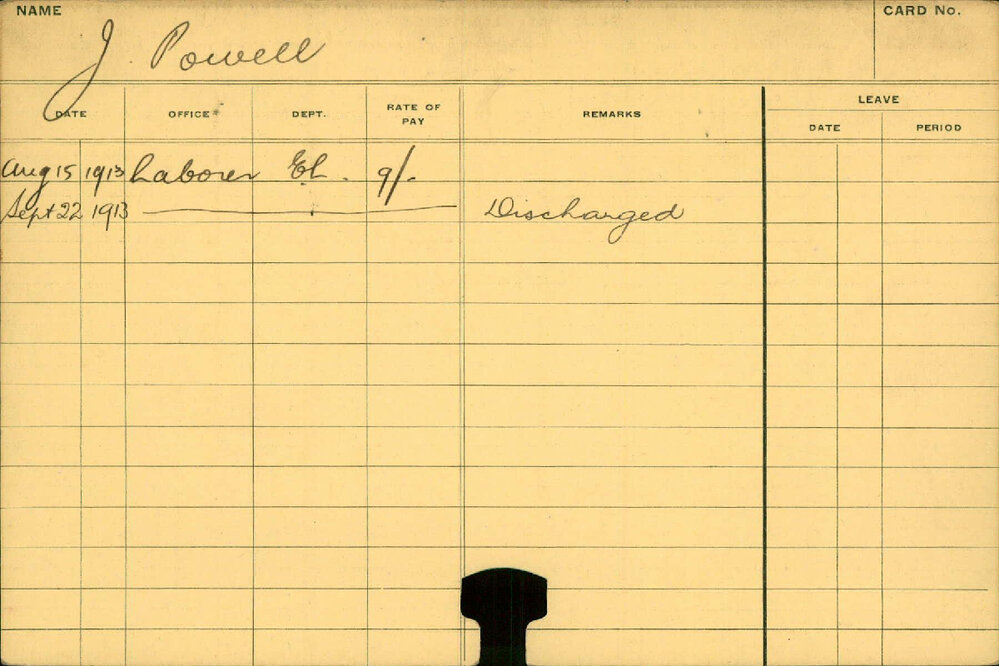 NAME
CARD No.
J. Powell
DATE OFFICE DEPT. RATE OF PAY REMARKS LEAVE
DATE PERIOD
Aug 15 1913 Laborer El. 9/-
Sept 22 1913 Discharged